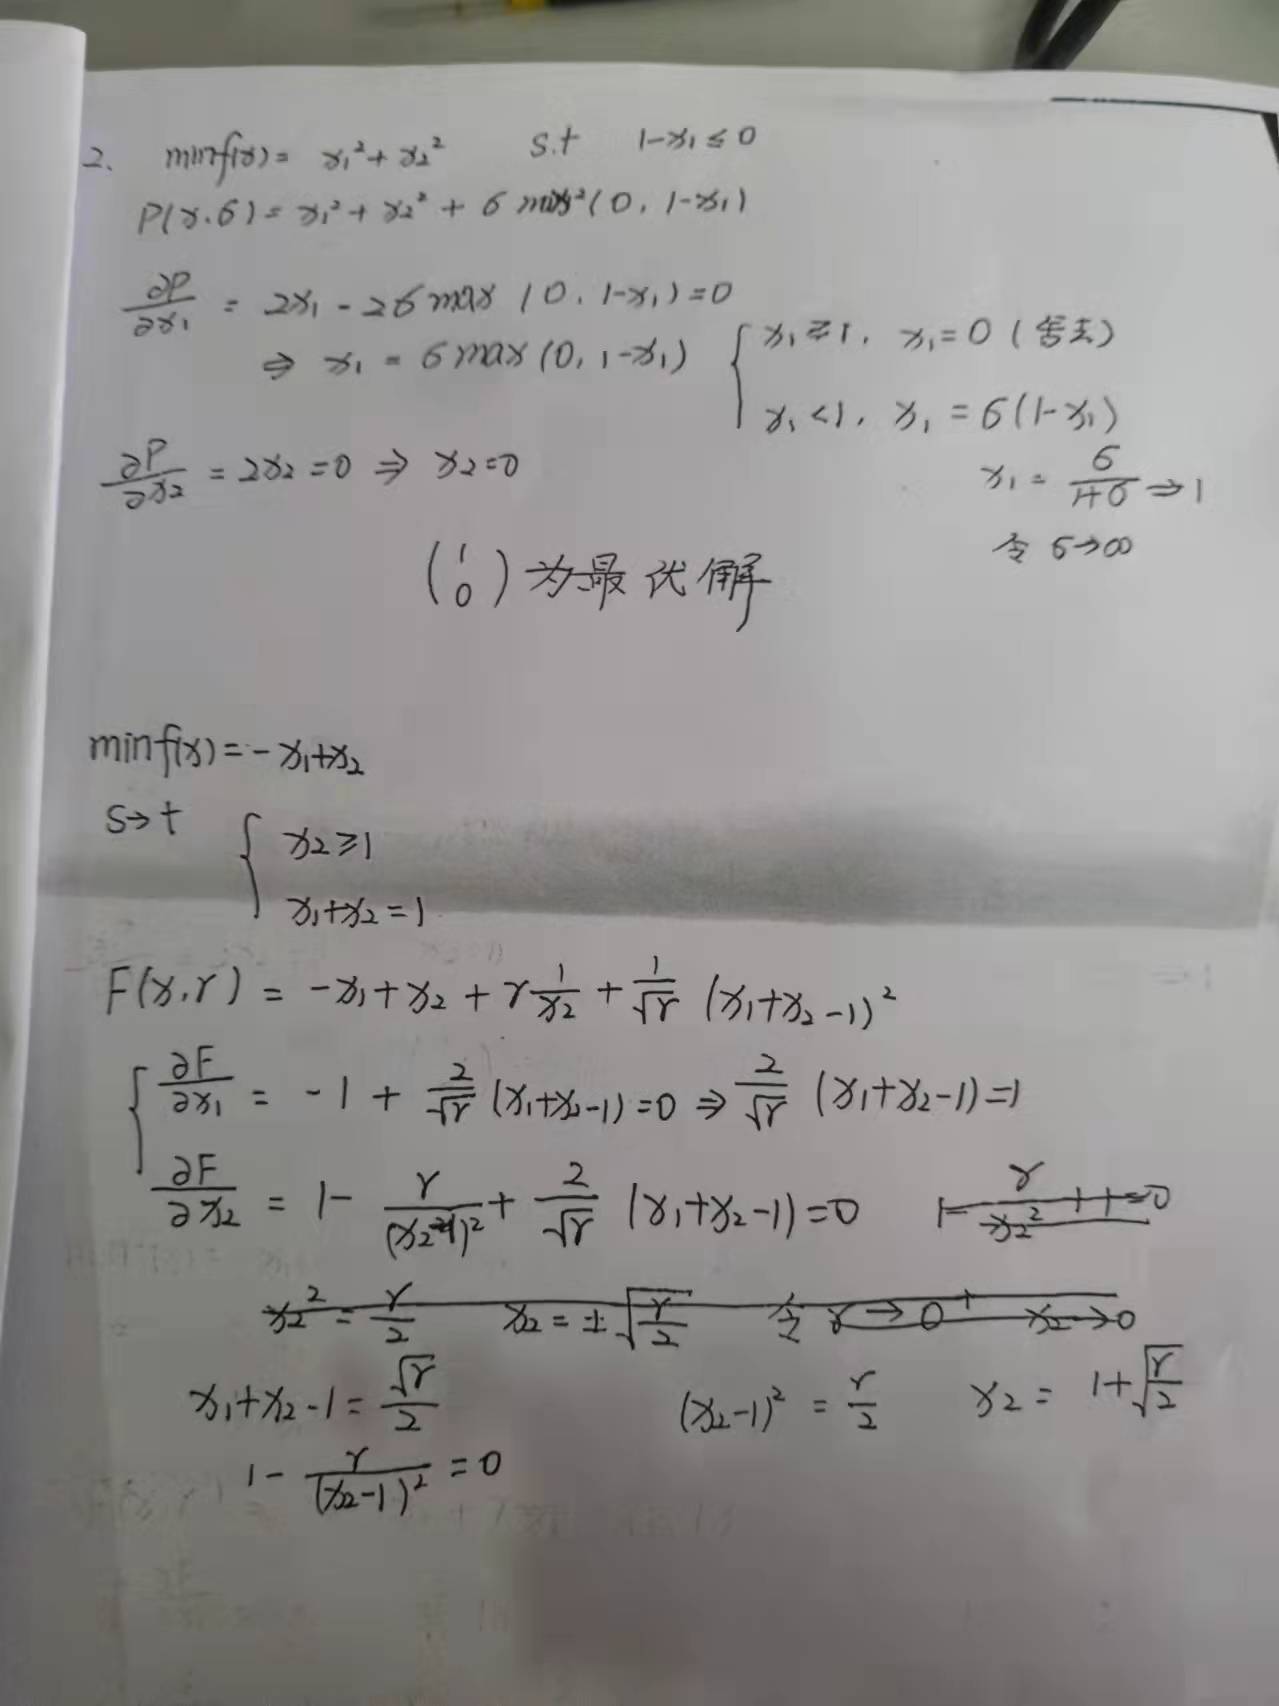 2. minf(x) = x₁² + x₂² s.t 1-x₁ ≤ 0
P(x.6) = x₁² + x₂² + 6 max²(0, 1-x₁)
∂P/∂x₁ = 2x₁ - 26 max (0, 1-x₁) = 0
⇒ x₁ = 6 max(0, 1-x₁) { x₁ ≥ 1, x₁ = 0 (舍去)
x₁ < 1, x₁ = 6(1-x₁)
∂P/∂x₂ = 2x₂ = 0 ⇒ x₂ = 0 x₁ = 6/(1+6) ⇒ 1
令 6→∞
(1 0) 为最优解
minf(x) = -x₁+x₂
s→t { x₂ ≥ 1
x₁+x₂ = 1
F(x,r) = -x₁ + x₂ + r 1/x₂ + 1/√r (x₁+x₂-1)²
{ ∂F/∂x₁ = -1 + 2/√r (x₁+x₂-1) = 0 ⇒ 2/√r (x₁+x₂-1) = 1
∂F/∂x₂ = 1 - r/(x₂-1)² + 2/√r (x₁+x₂-1) = 0 1 - r/x₂² + 1 = 0
x₂² = r/2 x₂ = ±√(r/2) 令 r → 0⁺ x₂→0
x₁+x₂-1 = √r/2 (x₂-1)² = r/2 x₂ = 1+√(r/2)
1 - r/(x₂-1)² = 0